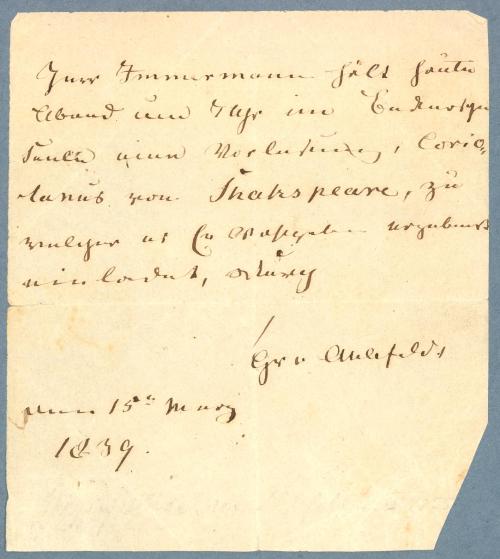 Herr Immermann hält heute
Abend um 7 Uhr im
Saale eine Vorlesung, Corio-
lanus von Shakspeare, zu
welcher er Ew ergebenst
einladet,
Gr v Ahlefeldt
den 15ten März
1839.